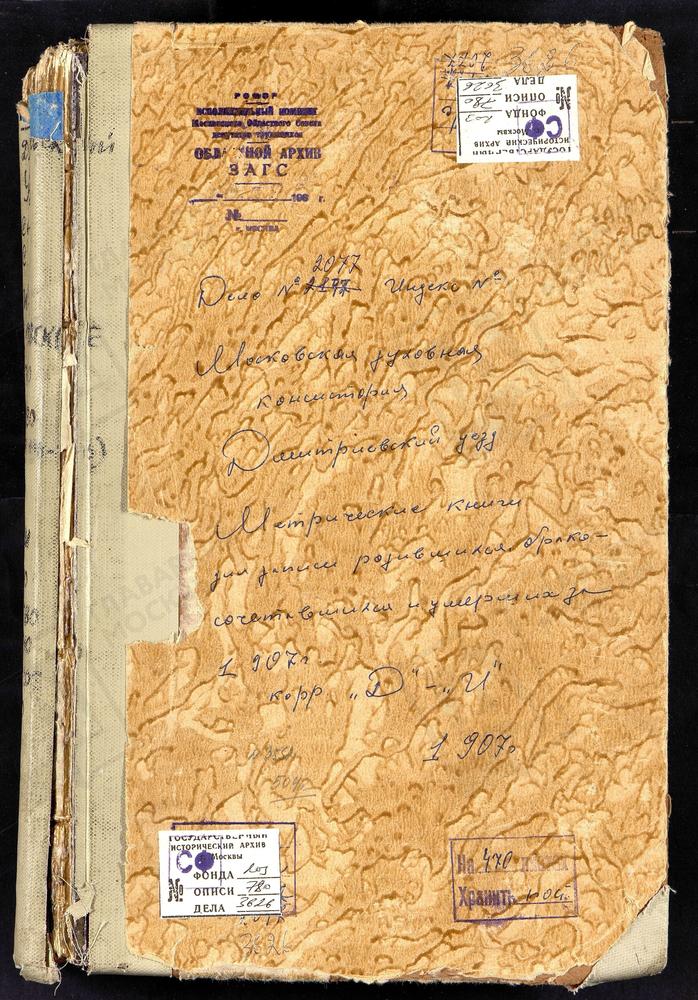 РСФСР
ИСПОЛНИТЕЛЬНЫЙ КОМИТЕТ
Московского Областного Совета
депутатов трудящихся
ОБЛ НОЙ АРХИВ
ЗАГС
196 г.
№
г. МОСКВА
ГОСУДАРСТВЕННЫЙ
ИСТОРИЧЕСКИЙ АРХИВ
г. Москвы
СФ
№
ФОНДА 203
ОПИСИ 780
ДЕЛА 3626
2077
Дело № Индекс №
Московская духовная
консистория
Дмитриевский уезд
Метрические книги
для записи родившихся бралко-
сочетавшихся и умерших за
1907г
корр „Д"-„И"
1907г
ГОСУДАРСТВЕННЫЙ
ИСТОРИЧЕСКИЙ АРХИВ
г. Москвы
СФ
№
ФОНДА 203
ОПИСИ 780
ДЕЛА 3626
3626
На 470 листах
Хранить пост.